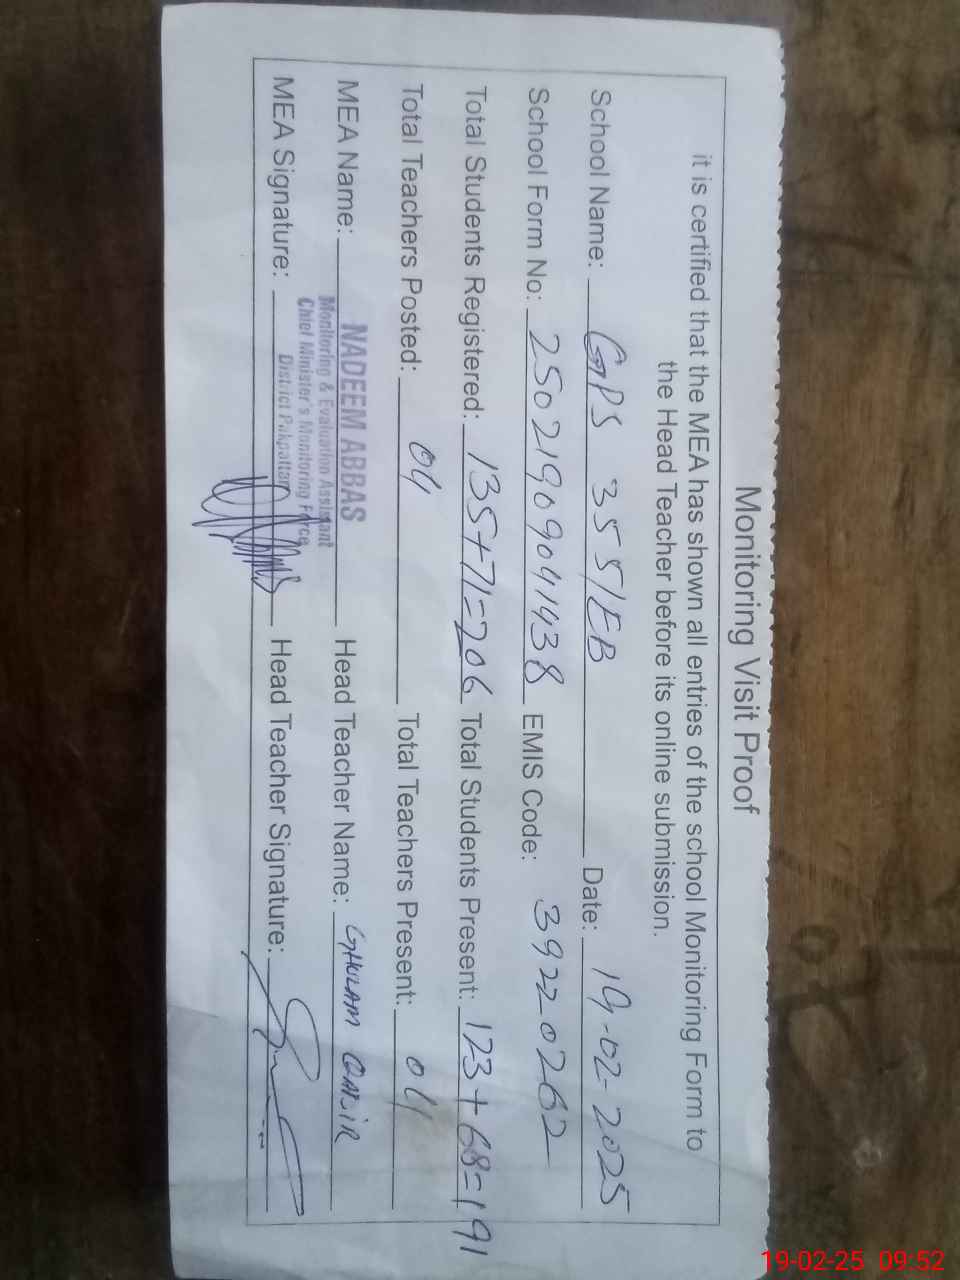 Monitoring Visit Proof
it is certified that the MEA has shown all entries of the school Monitoring Form to
the Head Teacher before its online submission.
School Name: GPS 355/EB Date: 19-02-2025
School Form No: 25021909041438 EMIS Code: 39220262
Total Students Registered: 135+71=206 Total Students Present: 123+68=191
Total Teachers Posted: 04 Total Teachers Present: 04
MEA Name: NADEEM ABBAS Head Teacher Name: GHULAM QADIR
Monitoring & Evaluation Assistant
Chief Minister's Monitoring Force
District Pakpattan
MEA Signature: Head Teacher Signature:
19-02-25 09:52